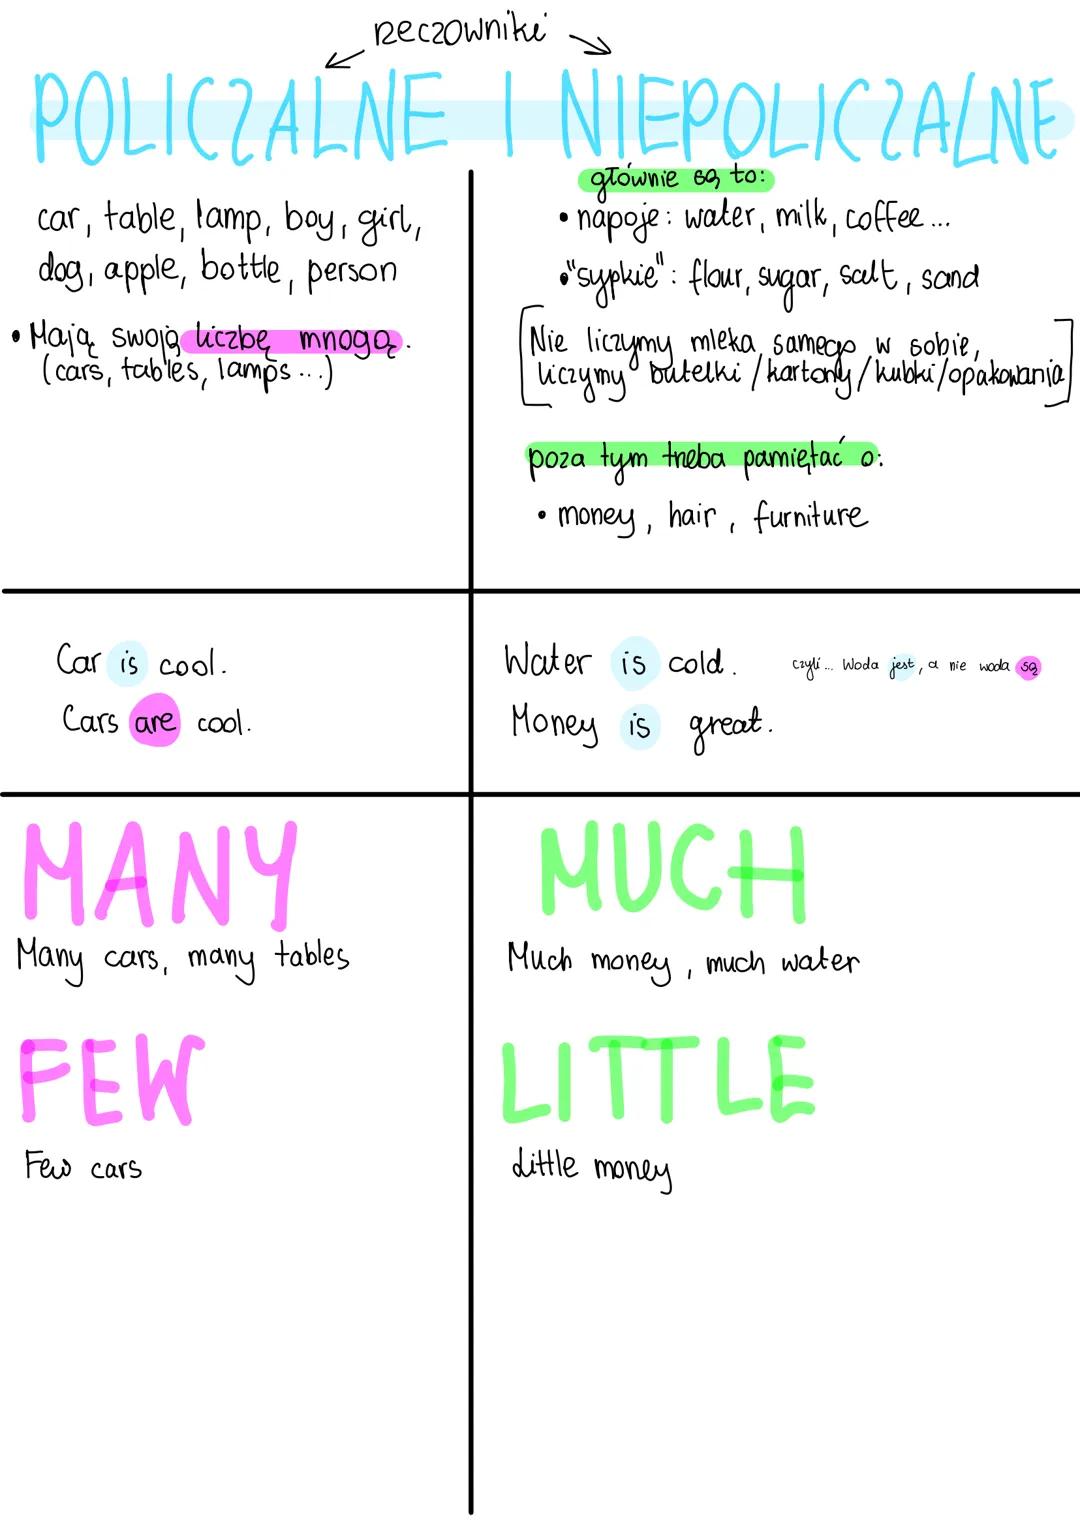 rzeczowniki
POLICZALNE I NIEPOLICZALNE
car, table, lamp, boy, girl,
dog, apple, bottle, person
• Mają swoją liczbę mnogą.
(cars, tables, lamps...)
głównie są to:
• napoje: water, milk, coffee...
• "sypkie": flour, sugar, salt, sand
[Nie liczymy mleka samego w sobie,
liczymy butelki/kartony/kubki/opakowania]
poza tym trzeba pamiętać o:
• money, hair, furniture
Car is cool.
Cars are cool.
Water is cold. czyli... Woda jest, a nie woda są
Money is great.
MANY
Many cars, many tables
FEW
Few cars
MUCH
Much money, much water
LITTLE
Little money